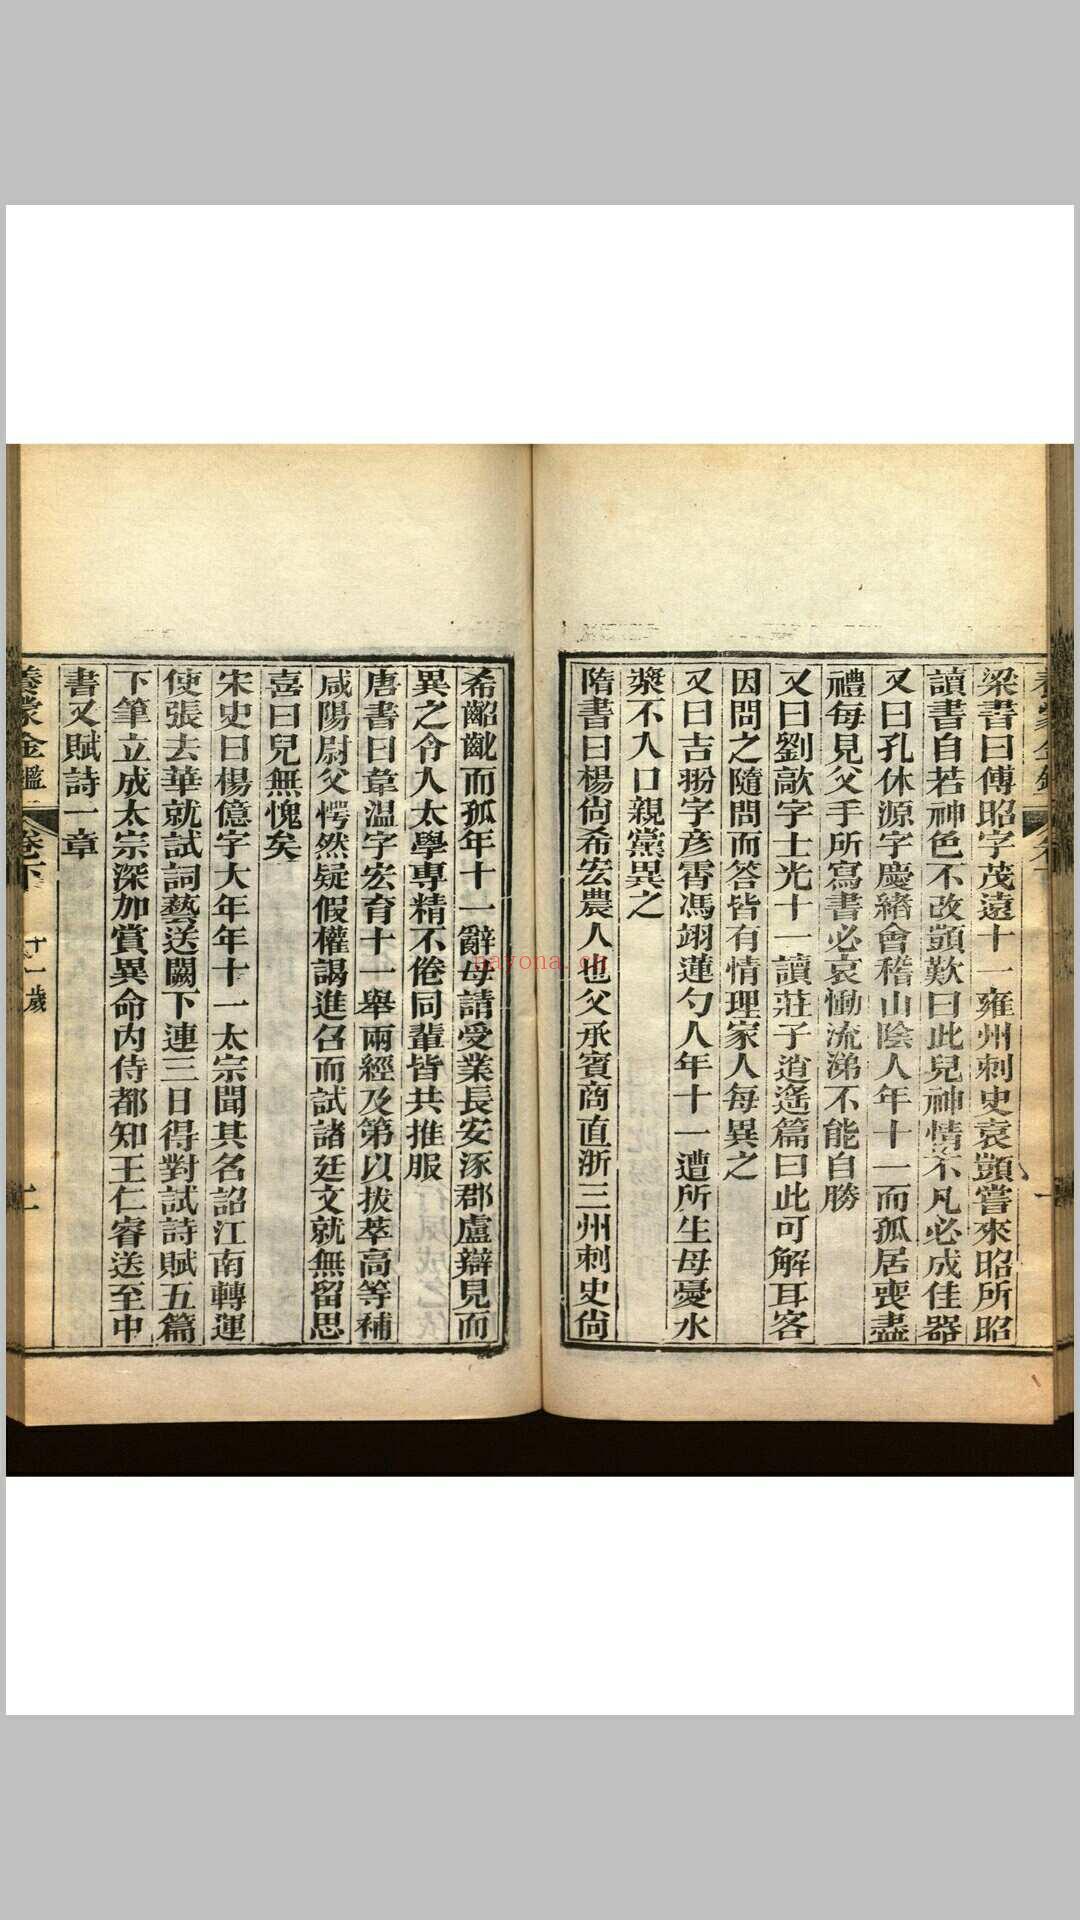 梁書曰傅昭字茂遠十一雍州刺史袁顗嘗來昭所昭
讀書自若神色不改顗歎曰此兒神情不凡必成佳器
又曰孔休源字慶緒會稽山陰人年十一而孤居喪盡
禮每見父手所寫書必哀慟流涕不能自勝
又曰劉歊字士光十一讀莊子逍遙篇曰此可解耳客
因問之隨問而答皆有情理家人每異之
又曰吉翂字彥霄馮翊蓮勺人年十一遭所生母憂水
漿不入口親黨異之
隋書曰楊尚希宏農人也父承賓商直浙三州刺史尚
希齠齔而孤年十一辭母請受業長安涿郡盧辯見而
異之令入太學專精不倦同輩皆共推服
唐書曰韋溫字宏育十一舉兩經及第以拔萃高等補
咸陽尉父愕然疑假權謁進召而試諸廷文就無留思
喜曰兒無愧矣
宋史曰楊億字大年年十一太宗聞其名詔江南轉運
使張去華就試詞藝送闕下連三日得對試詩賦五篇
下筆立成太宗深加賞異命內侍都知王仁睿送至中
書又賦詩一章
養蒙金鑑 卷下 十一歲
nayona.cn